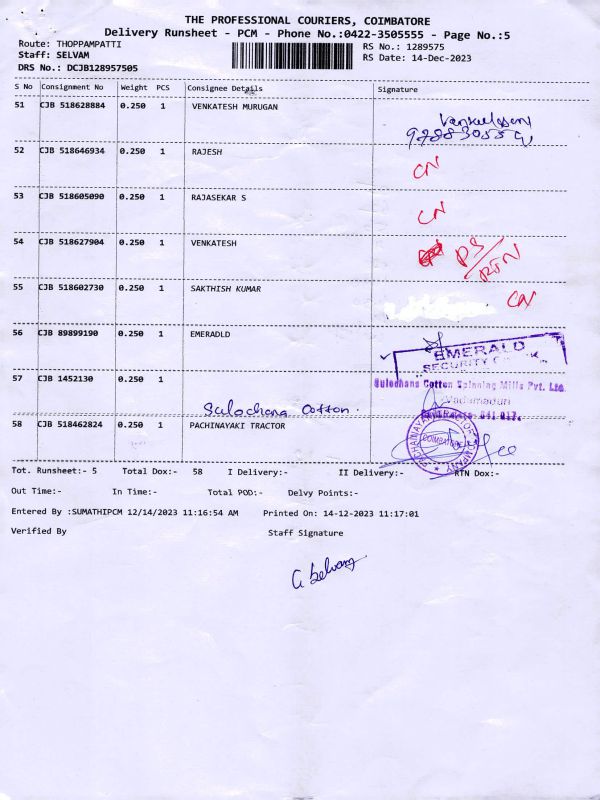 THE PROFESSIONAL COURIERS, COIMBATORE
Delivery Runsheet - PCM - Phone No.:0422-3505555 - Page No.:5
Route: THOPPAMPATTI RS No.: 1289575
Staff: SELVAM RS Date: 14-Dec-2023
DRS No.: DCJB128957505
S No Consignment No Weight PCS Consignee Details Signature
51 CJB 518628884 0.250 1 VENKATESH MURUGAN
52 CJB 518646934 0.250 1 RAJESH CN
53 CJB 518605090 0.250 1 RAJASEKAR S CN
54 CJB 518627904 0.250 1 VENKATESH PS/RTN
55 CJB 518602730 0.250 1 SAKTHISH KUMAR CN
56 CJB 89899190 0.250 1 EMERADLD
EMERALD
SECURITY
57 CJB 1452130 0.250 1
Sulochana Cotton Spinning Mills Pvt. Ltd.
Sulochana Cotton.
58 CJB 518462824 0.250 1 PACHINAYAKI TRACTOR
COIMBATORE
Tot. Runsheet:- 5 Total Dox:- 58 I Delivery:- II Delivery:- RTN Dox:-
Out Time:- In Time:- Total POD:- Delvy Points:-
Entered By :SUMATHIPCM 12/14/2023 11:16:54 AM Printed On: 14-12-2023 11:17:01
Verified By Staff Signature